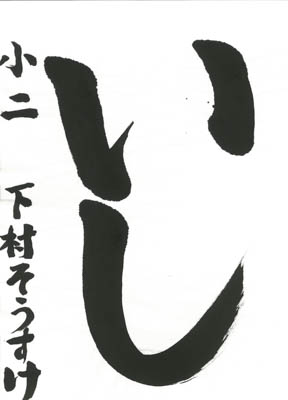 いし
小二 下村そうすけ